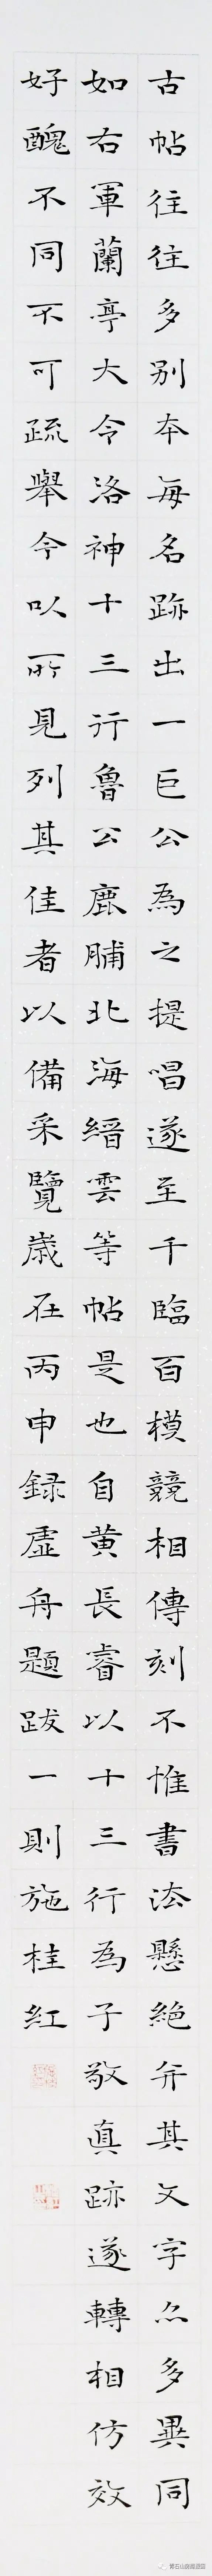 古帖往往多别本每名跡出一巨公為之提唱遂至千臨百模競相傳刻不惟書法懸絕并其文字亦多異同
如右軍蘭亭大令洛神十三行魯公鹿脯北海縉雲等帖是也自黄長睿以十三行為子敬真跡遂轉相仿效
好醜不同不可疏舉今以所見列其佳者以備采覽歲在丙申録虛舟題跋一則施桂紅